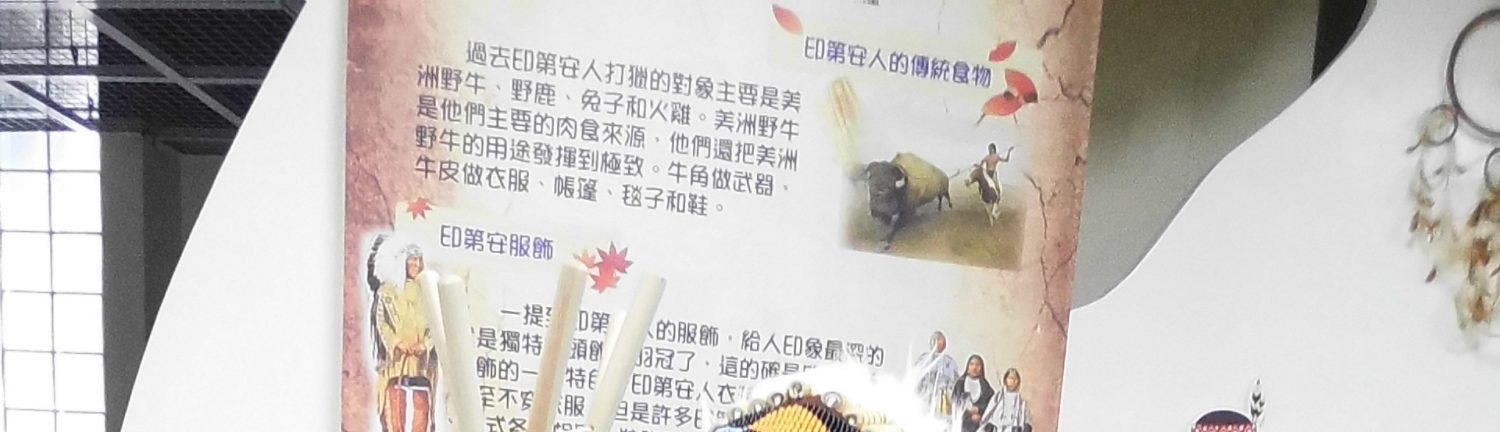 印第安人的傳統食物
過去印第安人打獵的對象主要是美
洲野牛、野鹿、兔子和火雞。美洲野牛
是他們主要的肉食來源，他們還把美洲
野牛的用途發揮到極致。牛角做武器，
牛皮做衣服、帳篷、毯子和鞋。
印第安服飾
一提到印第 人的服飾，給人印象最深的
是獨特 頭飾 羽冠了，這的確是
飾的一 特色 印第安人衣
至不穿 服 但是許多
式各